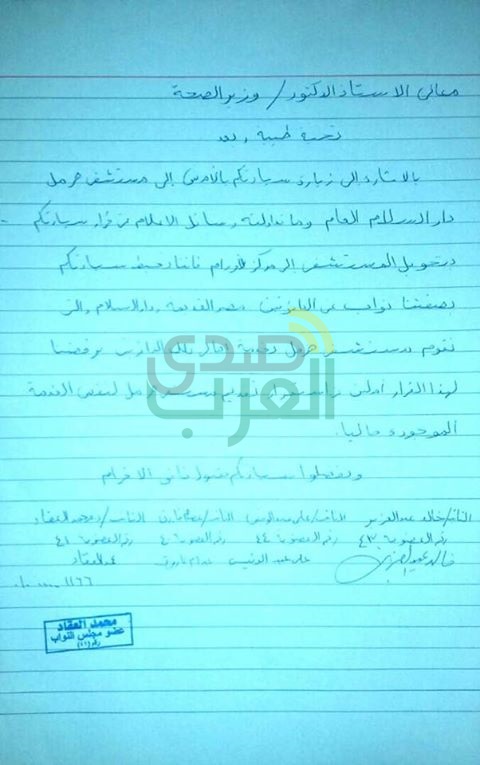 معالى الاستاذ الدكتور / وزير الصحة
تحية طيبة وبعد
بالاشارة إلى زيارة سيادتكم بالأمس إلى مستشفى هرمل
دار السلام العام وما تداولته وسائل الاعلام من قرار سيادتكم
بتحويل المستشفى إلى مركز للأورام فاننا نحيط سيادتكم
بصفتنا نواب عن الدائرتين مصر القديمة ودار السلام والتى
تقوم مستشفى هرمل بخدمة أهالى تلك الدائرتين برفضنا
لهذا القرار
الموجودة حاليا.
وتفضلوا سيادتكم بقبول فائق الاحترام
النائب/خالد عبدالعزيز النائب/ النائب/ النائب/محمد العقاد
رقم العضوية ٤٣ رقم العضوية ٤٤ رقم العضوية رقم العضوية ٤١
خالد عبدالعزيز محمد العقاد
صدى
العرب
محمد العقاد
عضو مجلس النواب
رقم (٤١)